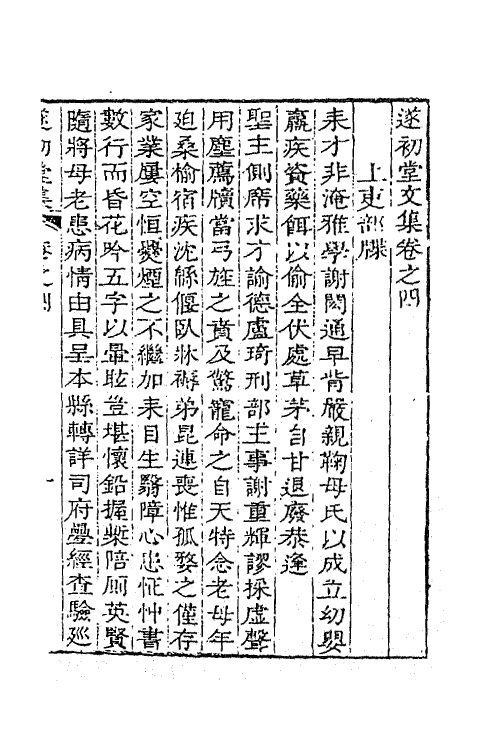 遂初堂文集卷之四
上吏部牒
耒才非淹雅學謝閎通早背嚴親鞠母氏以成立幼嬰
羸疾資藥餌以偷全伏處草茅自甘退廢恭逢
聖主側席求才諭德盧琦刑部主事謝重輝謬採虛聲
用塵薦牘當弓旌之賁及驚寵命之自天特念老母年
迫桑榆宿疾沈緜偃臥牀褥弟昆連喪惟孤嫠之僅存
家業屢空恒㸑煙之不繼加耒目生翳障心患怔忡書
數行而昏花吟五字以暈眩豈堪懷鉛握槧陪厠英賢
隨將母老患病情由具呈本縣轉詳司府疊經查驗廵
遂初堂集
卷之四
一